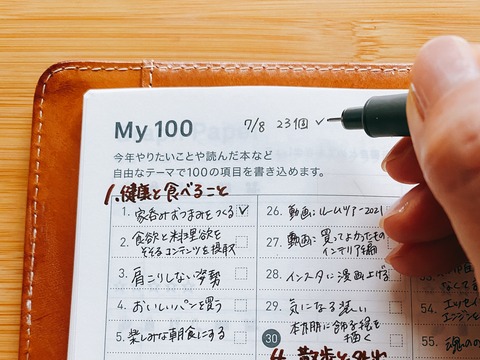 My 100
7/8 23個 ✓
今年やりたいことや読んだ本など
自由なテーマで100の項目を書き込めます。
1.健康と食べること
1. 家呑みおつまみをつくる ✓
2. 食欲と料理欲を
そそるコンテンツを摂取
3. 肩こりしない姿勢
4. おいしいパンを買う
5. 楽しみな朝食にする
26. 動画:ルームツアー2021
27. 動画:買ってよかったもの
インテリア編
28. インスタに漫画上げる
29. 気になる装い
30
本用に飾る絵を
描く
4. 散歩と
53.
54.
55. 魂の